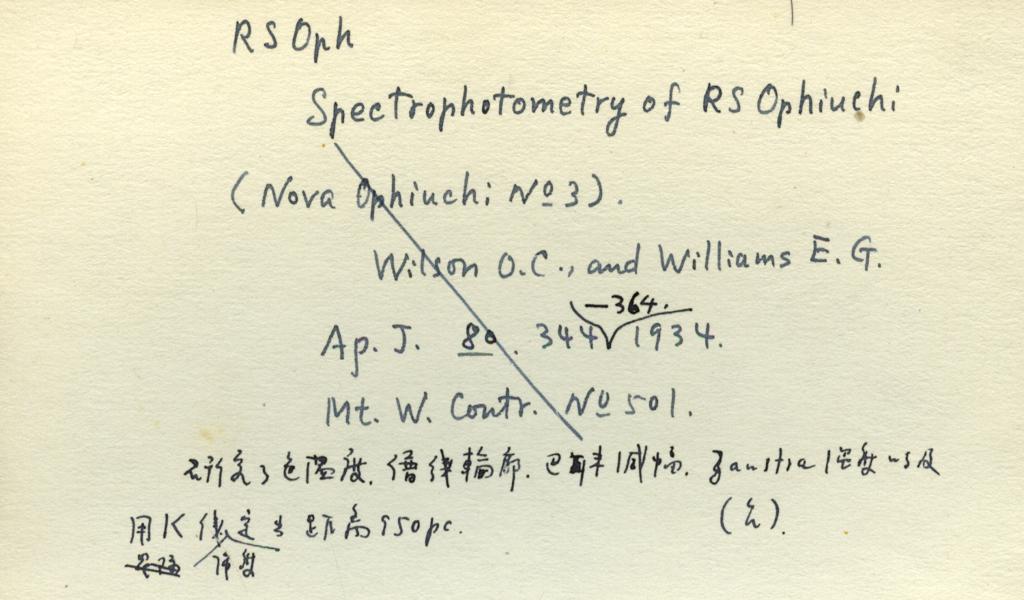 RS Oph
Spectrophotometry of RS Ophiuchi
(Nova Ophiuchi No 3).
Wilson O.C., and Williams E.G.
Ap. J. 80. 344-364. 1934.
Mt. W. Contr. No 501.
研究了色温度, 谱線輪廓, 巴耳末減幅, Zanstra 温度以及
用K線強度定出距離950pc. (玄).